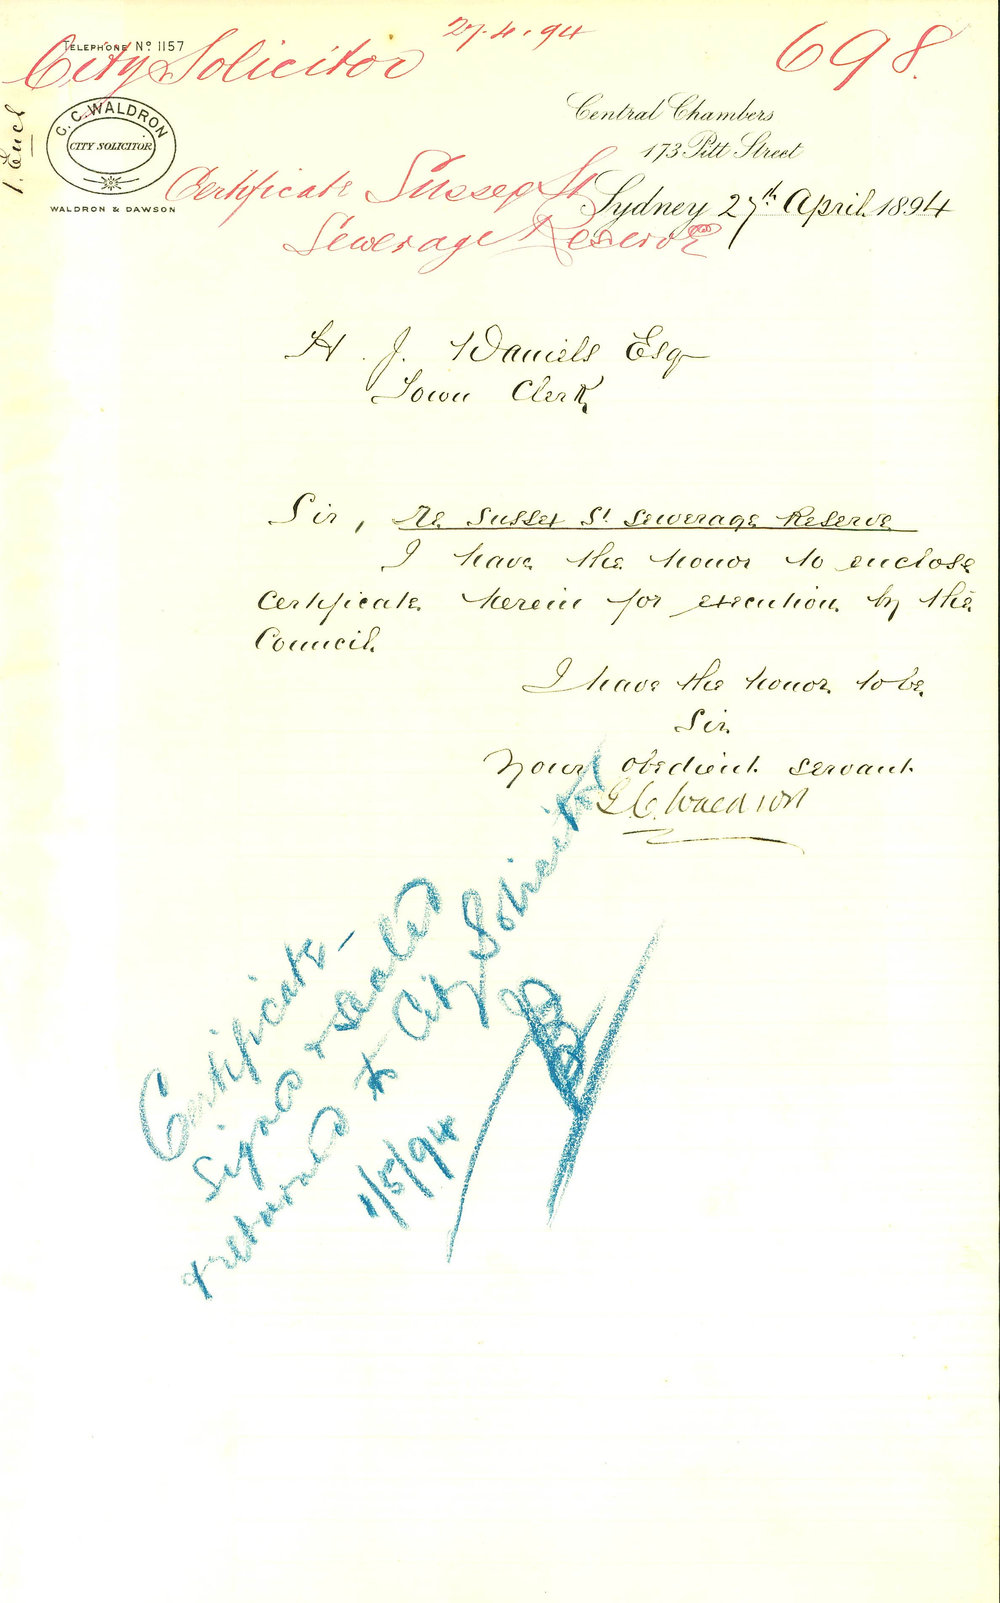 27.4.94
698.
TELEPHONE No 1157
City Solicitor
1. Encl
C. C. WALDRON
CITY SOLICITOR
WALDRON & DAWSON
Central Chambers
173 Pitt Street
Sydney 27th April 1894
Certificate Sussex St
Sewerage Reserve
H. J. Daniels Esq
Town Clerk
Sir, Re Sussex St. Sewerage Reserve
I have the honor to enclose
Certificate herein for execution by the
Council.
I have the honor to be
Sir
Your obedient servant
C. C. Waldron
Certificate -
signed & sealed
& returned to City Solicitor
1/5/94